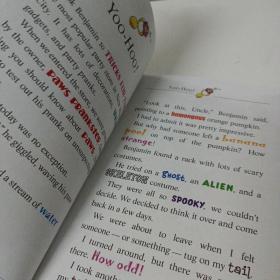 YOO-HOO!
Benjamin to TRICKS FOR
most popular
It has lots of
gadgets, and party pranks.
When we entered the store,
by the owner, PAWS PRANKSTER
thing you should know about PAWS
to test out his pranks on
today was no exception.
he giggled, waving his paw
d a stream of water
YOO-HOO!
"Look at this, Uncle," Benjamin said,
pointing to a humongous orange pumpkin.
I had to admit it was pretty impressive.
why had someone left a banana
peel on top of the pumpkin? How
strange!
Benjamin found a rack with lots of scary
costumes.
He tried on a ghost, an ALIEN, and a
SKELETON costume.
They were all so SPOOKY, we couldn't
decide. We decided to think it over and come
back in a few days.
We were about to leave when I felt
someone — or something — tug on my tail.
I turned around, but there was
there. How odd!
I took